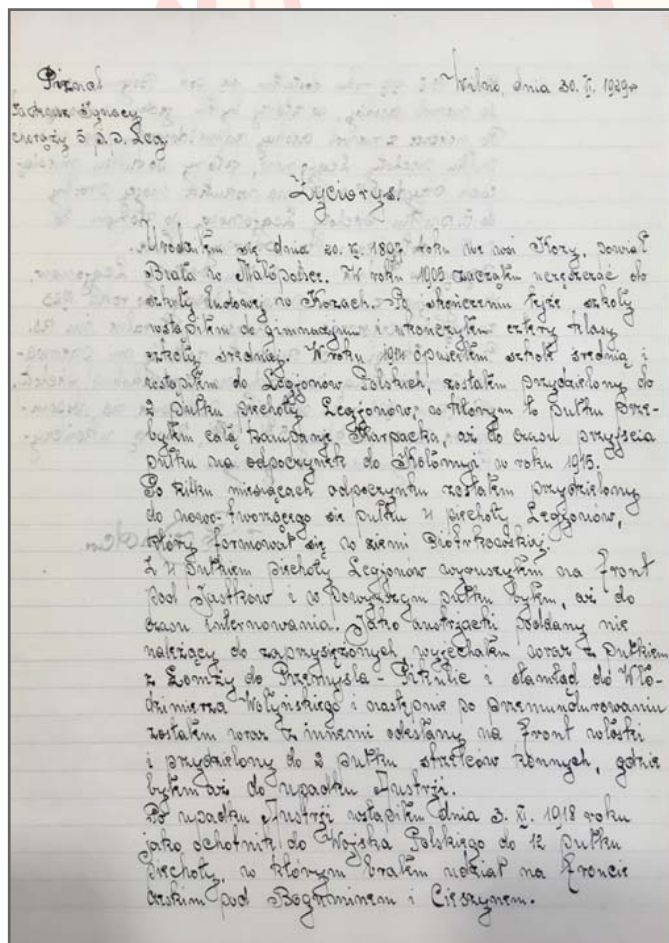 Wilno, dnia 30. V. 1929 r
Ignacy
chorąży 5 p. p. Leg
Życiorys.
Urodziłem się dnia 20. VI. 1897 roku we wsi Kozy, powiat
Biała w Małopolsce. W roku 1905 zacząłem uczęszczać do
szkoły ludowej w Kozach. Po skończeniu tejże szkoły
wstąpiłem do gimnazjum i ukończyłem cztery klasy
szkoły średniej. W roku 1914 opuściłem szkołę średnią i
wstąpiłem do Legjonów Polskich, zostałem przydzielony do
2 pułku piechoty Legjonów, w którym to pułku prze-
byłem całą kampanję Karpacką, aż do czasu przyjścia
pułku na odpoczynek do Kołomyji w roku 1915.
Po kilku miesiącach odpoczynku zostałem przydzielony
do nowo-tworzącego się pułku 4 piechoty Legjonów,
który formował się w ziemi Piotrkowskiej.
Z 4 pułkiem piechoty Legjonów wyruszyłem na front
pod Jastków i w powyższym pułku byłem, aż do
czasu internowania. Jako austrjacki poddany nie
należący do zaprzysiężonych, wyjechałem wraz z pułkiem
z Łomży do Przemyśla - Pikulic i stamtąd do Wło-
dzimierza Wołyńskiego i następnie po przemundurowaniu
zostałem wraz z innemi odesłany na front włoski
i przydzielony do 2 pułku strzelców konnych, gdzie
byłem aż do upadku Austrji.
Po upadku Austrji wstąpiłem dnia 3. XI. 1918 roku
jako ochotnik do Wojska Polskiego do 12 pułku
piechoty, w którym brałem udział na froncie
czeskim pod Boguminem i Cieszynem.